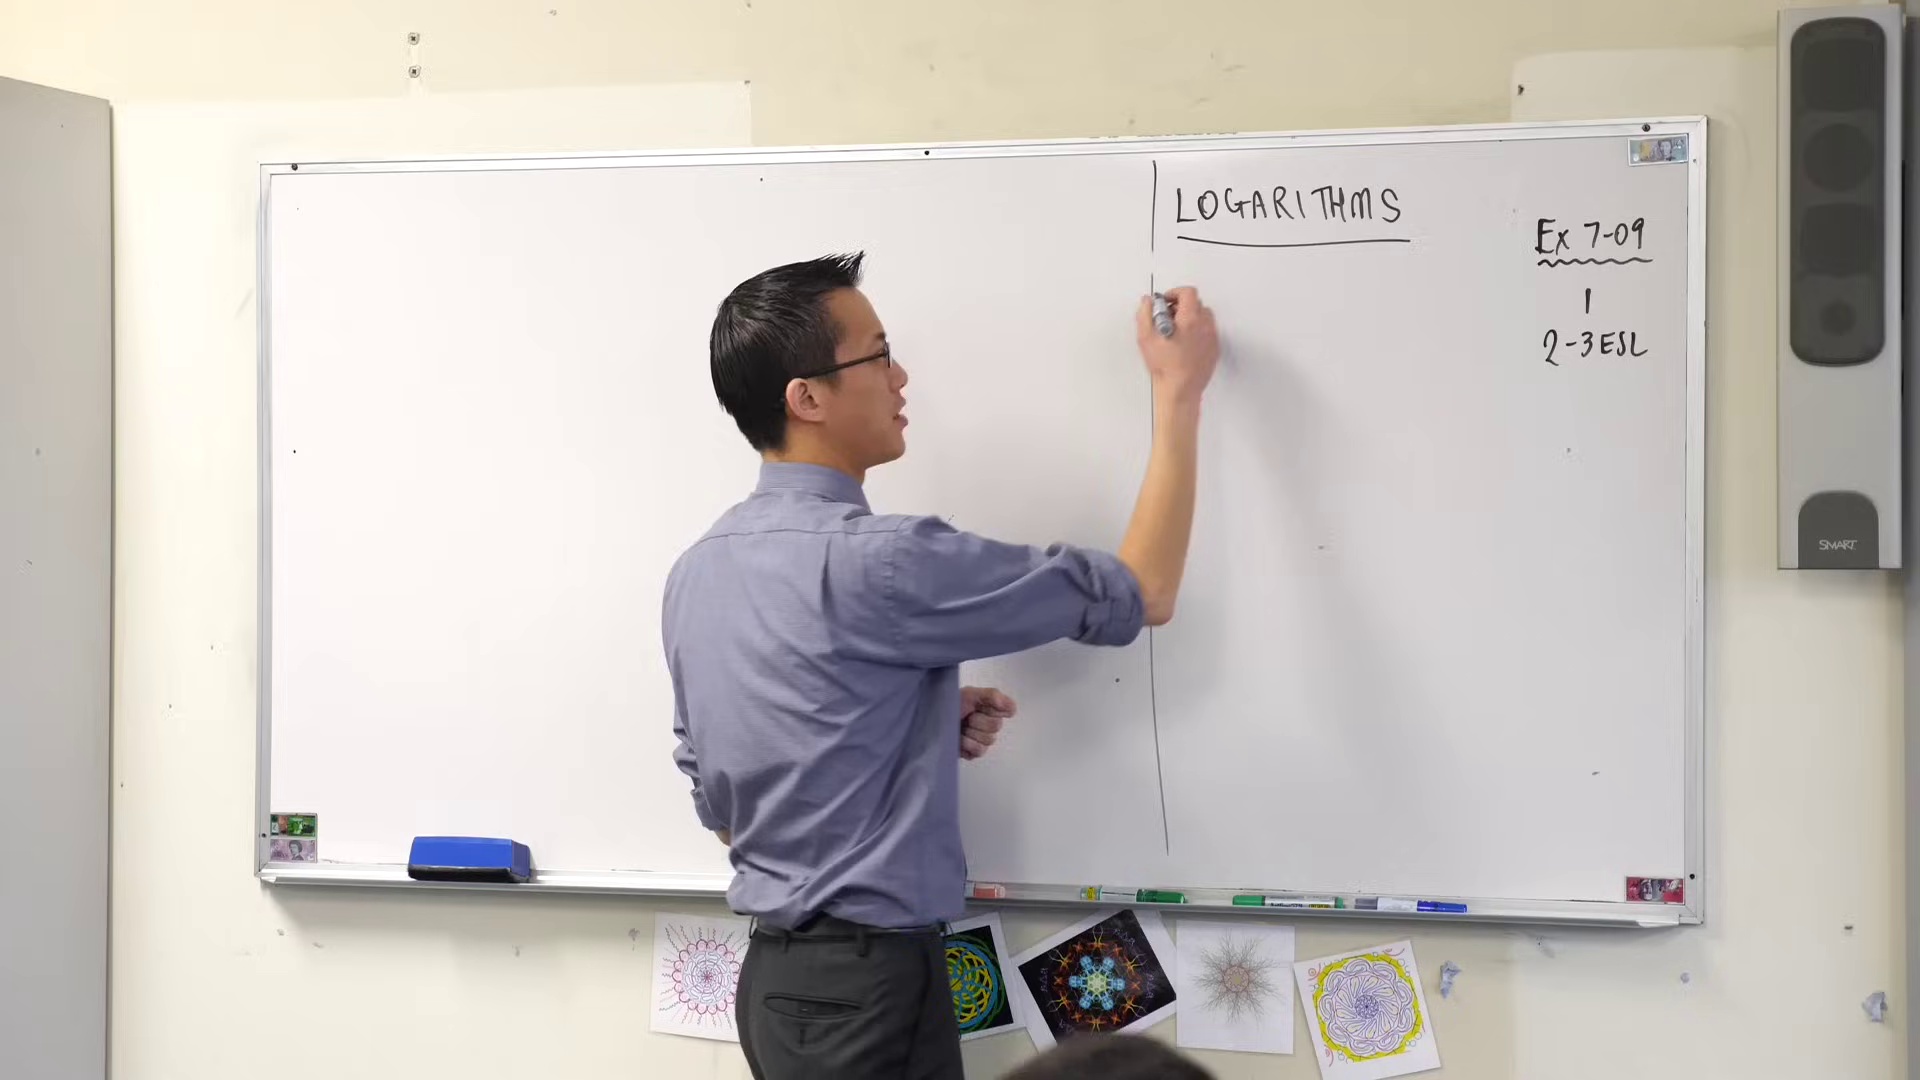 LOGARITHMS
Ex 7-09
1
2-3ESL
SMART